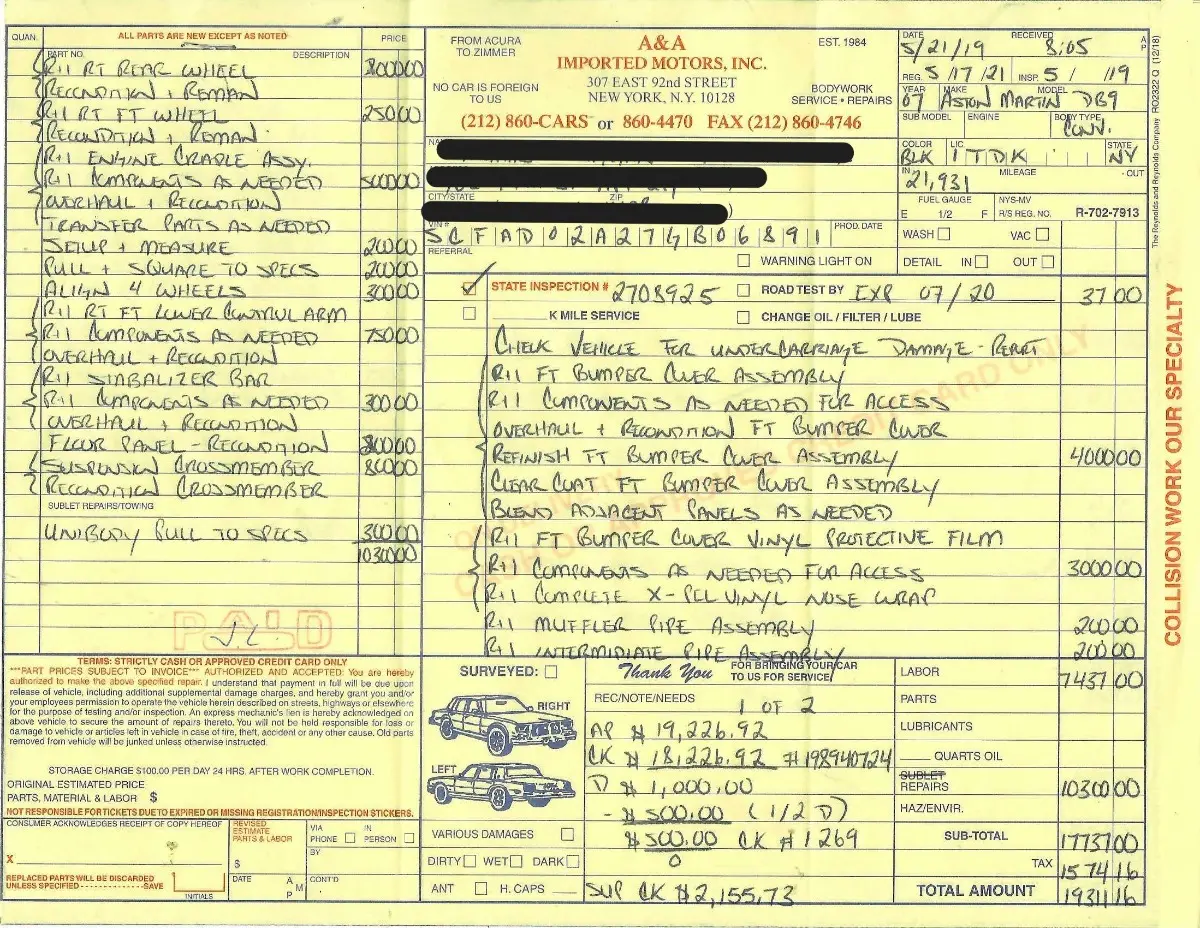 QUAN. ALL PARTS ARE NEW EXCEPT AS NOTED PRICE
PART NO. DESCRIPTION
R+I RT REAR WHEEL 80000
RECONDITION + REMAN
R+I RT FT WHEEL 25000
RECONDITION + REMAN
R+I ENGINE CRADLE ASSY.
R+I COMPONENTS AS NEEDED 500000
OVERHAUL + RECONDITION
TRANSFER PARTS AS NEEDED
SETUP + MEASURE 20000
PULL + SQUARE TO SPECS 20000
ALIGN 4 WHEELS 30000
R+I RT FT LOWER CONTROL ARM
R+I COMPONENTS AS NEEDED 75000
OVERHAUL + RECONDITION
R+I STABALIZER BAR
R+I COMPONENTS AS NEEDED 30000
OVERHAUL + RECONDITION
FLOOR PANEL - RECONDITION
SUSPENSION CROSSMEMBER 80000
RECONDITION CROSSMEMBER
SUBLET REPAIRS/TOWING
UNIBODY PULL TO SPECS 30000
1030000
PAID
TERMS: STRICTLY CASH OR APPROVED CREDIT CARD ONLY
***PART PRICES SUBJECT TO INVOICE*** AUTHORIZED AND ACCEPTED: You are hereby
authorized to make the above specified repair. I understand that payment in full will be due upon
release of vehicle, including additional supplemental damage charges, and hereby grant you and/or
your employees permission to operate the vehicle herein described on streets, highways or elsewhere
for the purpose of testing and/or inspection. An express mechanic's lien is hereby acknowledged on
above vehicle to secure the amount of repairs thereto. You will not be held responsible for loss or
damage to vehicle or articles left in vehicle in case of fire, theft, accident or any other cause. Old parts
removed from vehicle will be junked unless otherwise instructed.
STORAGE CHARGE $100.00 PER DAY 24 HRS. AFTER WORK COMPLETION.
ORIGINAL ESTIMATED PRICE
PARTS, MATERIAL & LABOR $
NOT RESPONSIBLE FOR TICKETS DUE TO EXPIRED OR MISSING REGISTRATION/INSPECTION STICKERS.
CONSUMER ACKNOWLEDGES RECEIPT OF COPY HEREOF
X
REPLACED PARTS WILL BE DISCARDED
UNLESS SPECIFIED - - - - - - - - - - - - - -SAVE
INITIALS
REVISED
ESTIMATE
PARTS & LABOR
$
DATE A M P
VIA PHONE IN PERSON
BY
CONT'D
FROM ACURA
TO ZIMMER
NO CAR IS FOREIGN
TO US
A&A
IMPORTED MOTORS, INC.
307 EAST 92nd STREET
NEW YORK, N.Y. 10128
EST. 1984
BODYWORK
SERVICE • REPAIRS
(212) 860-CARS or 860-4470 FAX (212) 860-4746
CITY/STATE ZIP
VIN #
SCFAD02A27GB06891 PROD. DATE
REFERRAL
WARNING LIGHT ON
DATE 5/21/19 RECEIVED 8:05 A P
REG. 5/17/21 INSP. 5/ /19
YEAR 07 MAKE ASTON MARTIN MODEL DB9
SUB MODEL ENGINE BODY TYPE CONV.
COLOR BLK LIC. 1TDK STATE NY
IN 21,931 MILEAGE - OUT
FUEL GAUGE NYS-MV
E 1/2 F R/S REG. NO. R-702-7913
WASH VAC
DETAIL IN OUT
The Reynolds and Reynolds Company RO2322 Q (12/18)
STATE INSPECTION # 2708925 ROAD TEST BY EXP 07/20 3700
K MILE SERVICE CHANGE OIL / FILTER / LUBE
CHECK VEHICLE FOR UNDERCARRIAGE DAMAGE - REPORT
R+I FT BUMPER COVER ASSEMBLY
R+I COMPONENTS AS NEEDED FOR ACCESS
OVERHAUL + RECONDITION FT BUMPER COVER
REFINISH FT BUMPER COVER ASSEMBLY 400000
CLEAR COAT FT BUMPER COVER ASSEMBLY
BLEND ADJACENT PANELS AS NEEDED
R+I FT BUMPER COVER VINYL PROTECTIVE FILM
R+I COMPONENTS AS NEEDED FOR ACCESS 300000
R+I COMPLETE X-PEL VINYL NOSE WRAP
R+I MUFFLER PIPE ASSEMBLY 20000
R+I INTERMIDIATE PIPE ASSEMBLY 20000
COLLISION WORK OUR SPECIALTY
SURVEYED:
Thank You FOR BRINGING YOUR CAR
TO US FOR SERVICE
RIGHT
LEFT
VARIOUS DAMAGES
DIRTY WET DARK
ANT H. CAPS
REC/NOTE/NEEDS 1 OF 2
AP $ 19,226.92
CK $ 18,226.92 # 198940724
D $ 1,000.00
- $ 500.00 (1/2 D)
$ 500.00 CK # 1269
0
SUP CK $2,155.73
LABOR 743700
PARTS
LUBRICANTS
QUARTS OIL
SUBLET
REPAIRS 1030000
HAZ/ENVIR.
SUB-TOTAL 1773700
TAX 157416
TOTAL AMOUNT 1931116